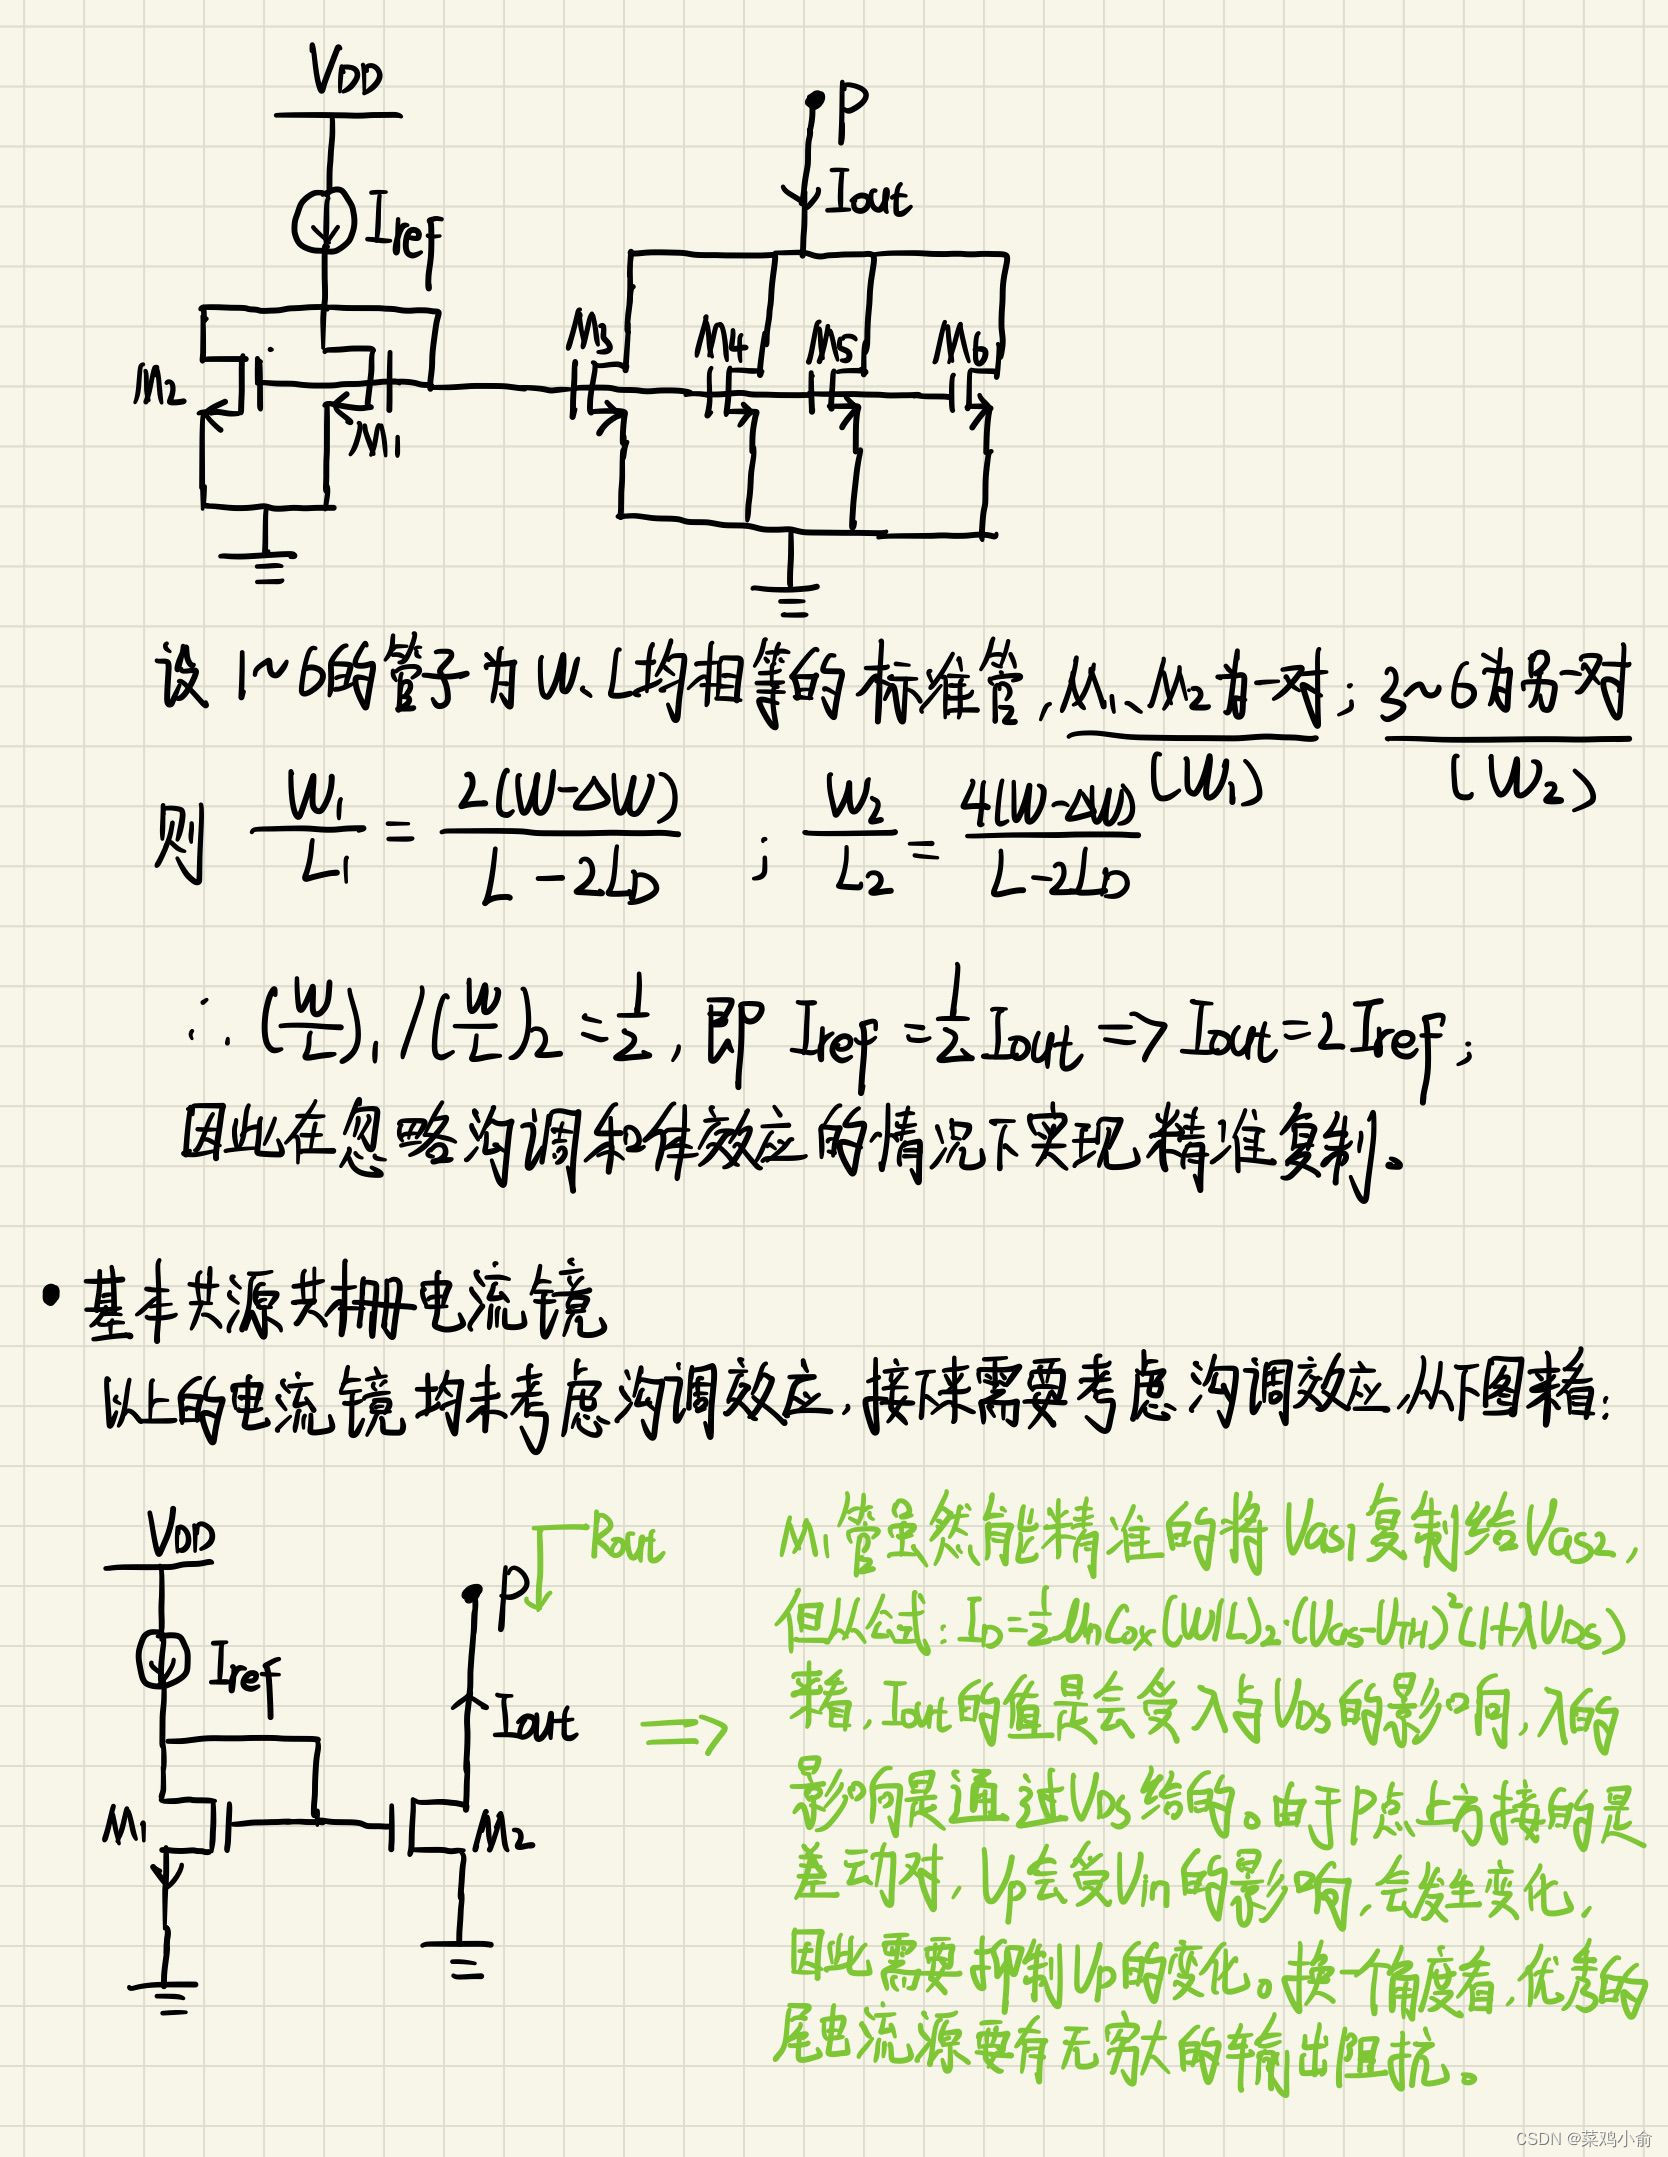 VDD
P
Iout
Iref
M3
M4
M5
M6
M2
M1
设1~6的管子为W、L均相等的标准管,M1、M2为一对;3~6为另一对
(W1)
(W2)
则 W1/L1 = 2(W-ΔW)/(L-2LD) ; W2/L2 = 4(W-ΔW)/(L-2LD)
∴ (W/L)1/(W/L)2 = 1/2, 即 Iref = 1/2 Iout => Iout = 2Iref;
因此在忽略沟调和体效应的情况下实现精准复制。
• 基本共源共栅电流镜
以上的电流镜均未考虑沟调效应,接下来需要考虑沟调效应,从下图来看:
VDD
Rout
P
Iref
Iout
M1
M2
=>
M1管虽然能精准的将VGS1复制给VGS2,
但从公式:ID=1/2 μnCox(W/L)2·(VGS-VTH)²(1+λVDS)
来看,Iout的值是会受λ与VDS的影响,λ的
影响是通过VDS给的。由于P点上方接的是
差动对,Vp会受Vin的影响,会发生变化,
因此需要抑制Vp的变化。换一个角度看,优秀的
尾电流源要有无穷大的输出阻抗。
CSDN @菜鸡小俞